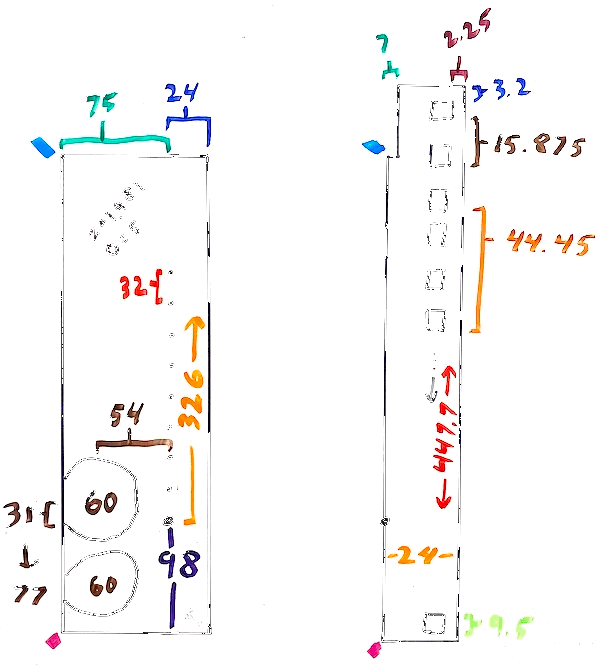 75
24
32
326
54
31
60
77
60
98
7
2.25
3.2
15.875
44.45
447.7
24
9.5